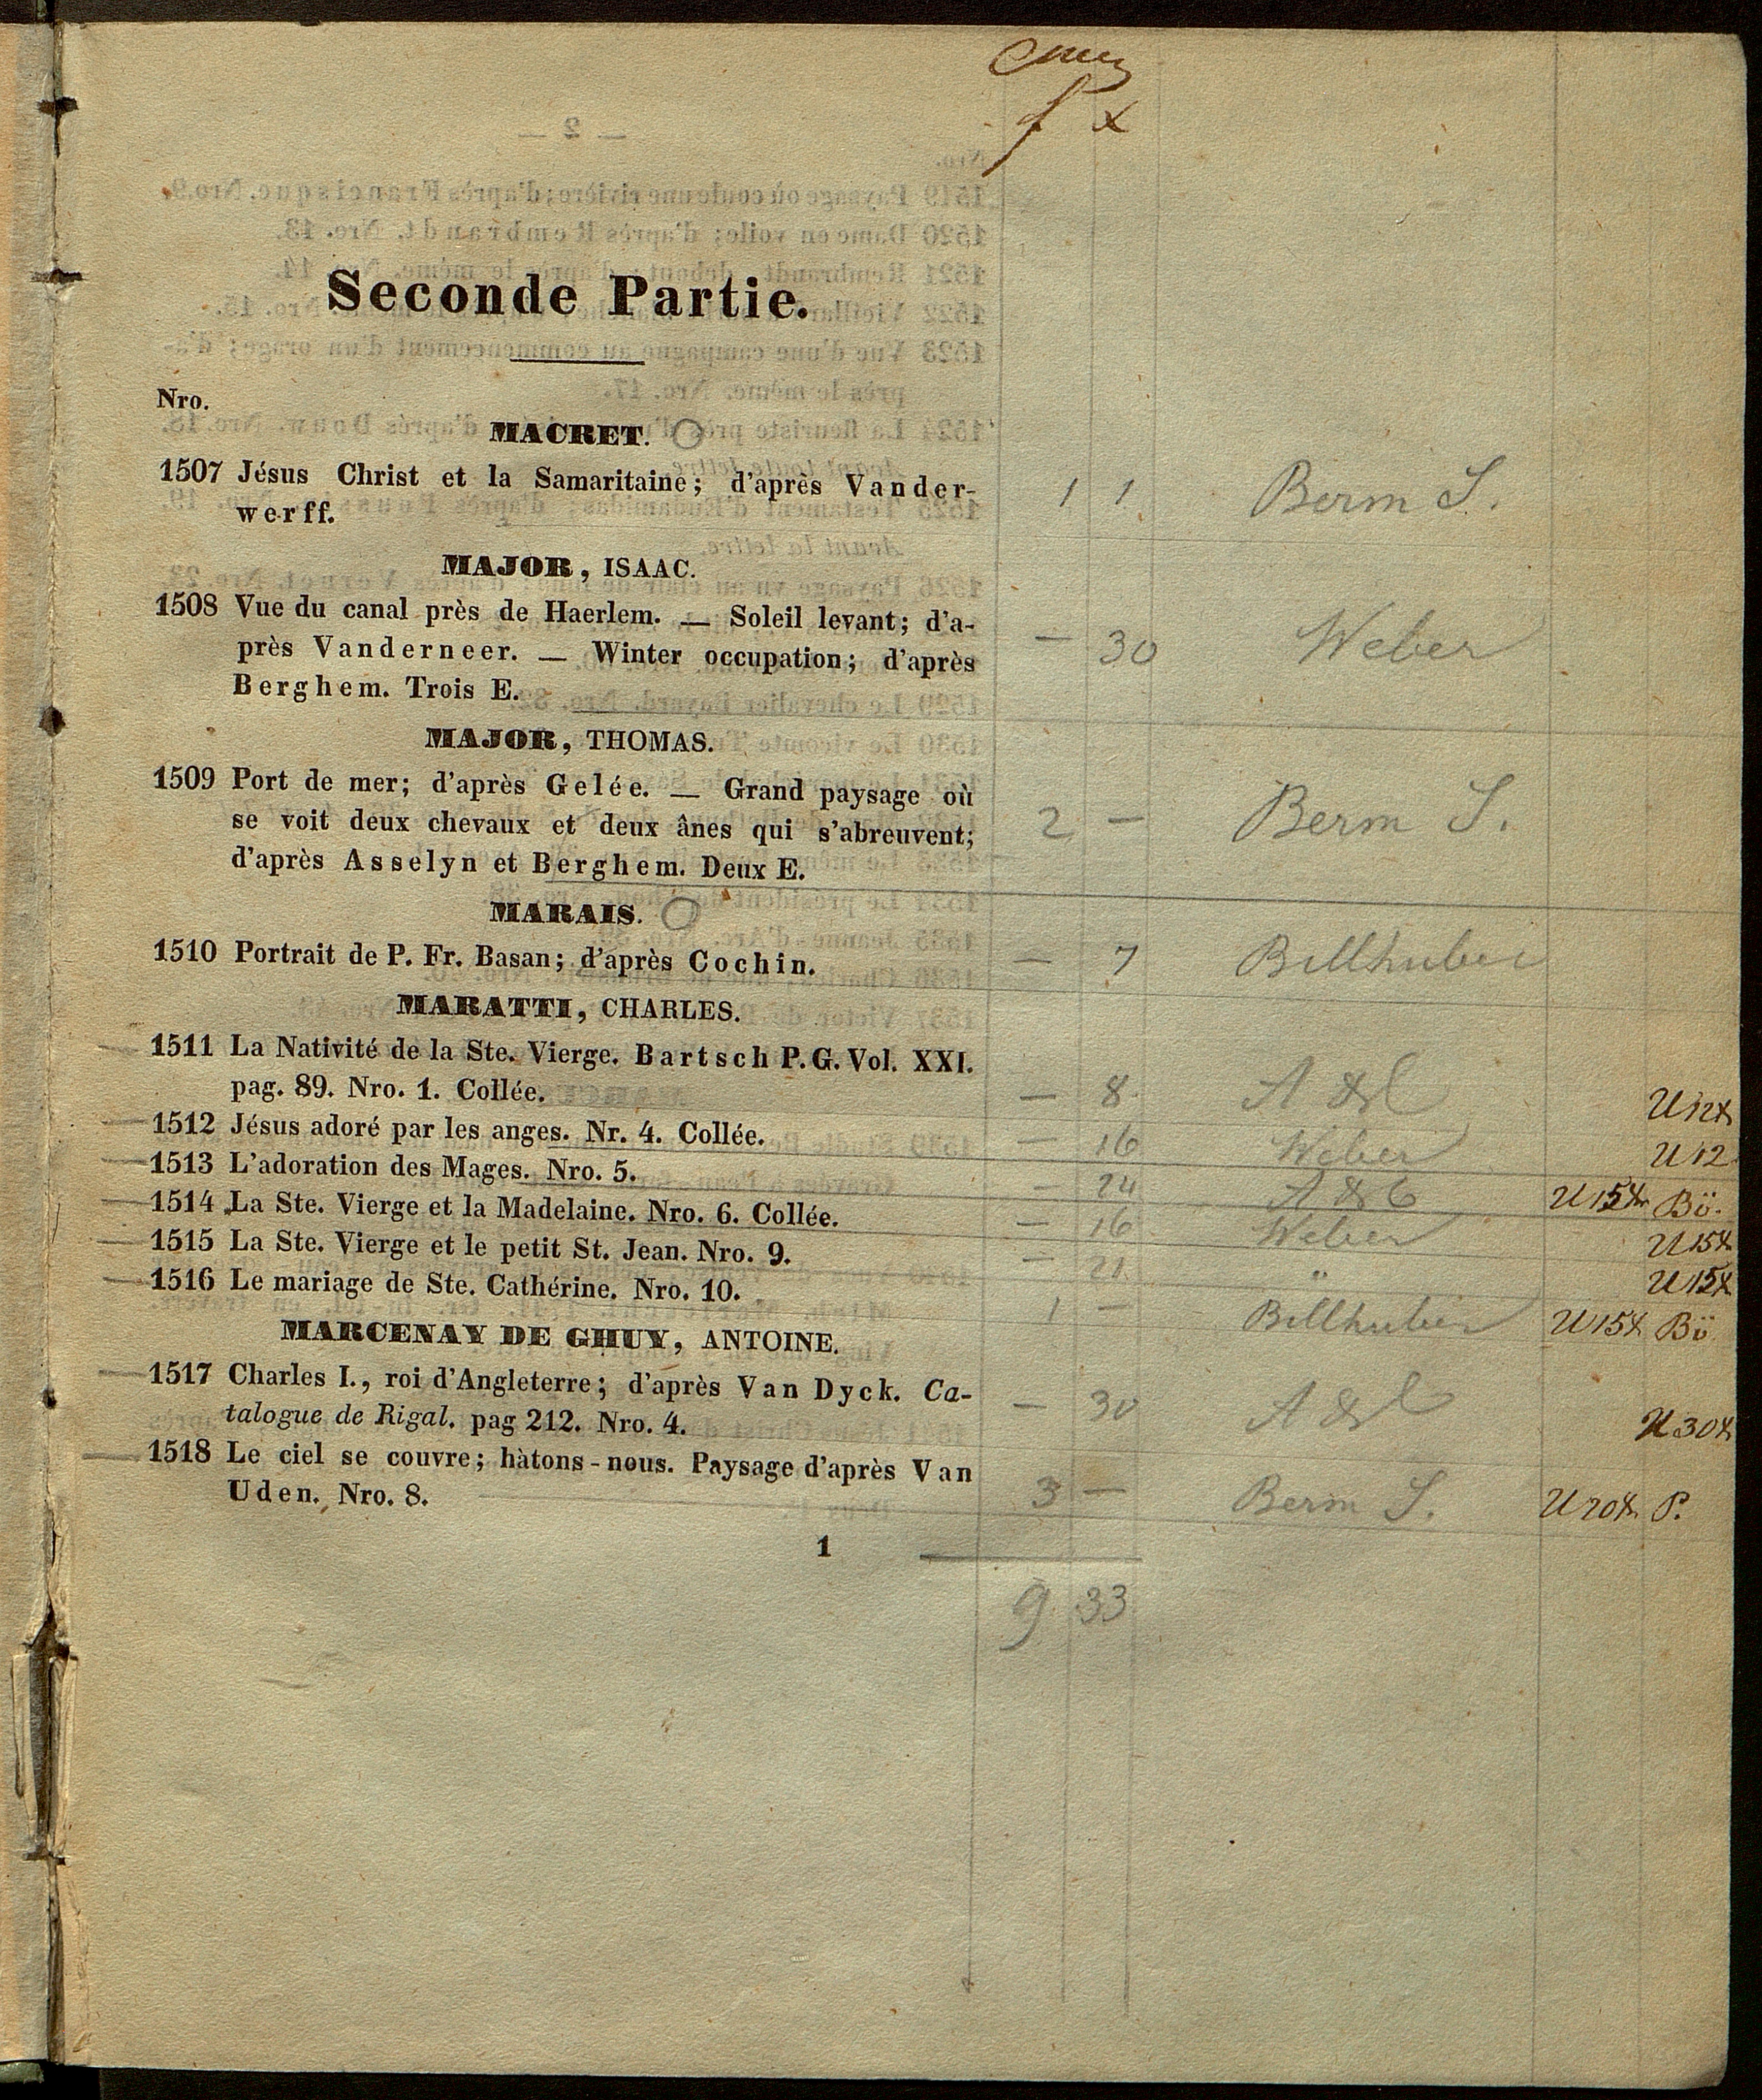 Seconde Partie.
Nro.
MACRET.
1507 Jésus Christ et la Samaritaine; d'après Vander-
werff.
1 1 Berm S.
MAJOR, ISAAC.
1508 Vue du canal près de Haerlem. — Soleil levant; d'a-
près Vanderneer. — Winter occupation; d'après
Berghem. Trois E.
— 30 Weber
MAJOR, THOMAS.
1509 Port de mer; d'après Gelée. — Grand paysage où
se voit deux chevaux et deux ânes qui s'abreuvent;
d'après Asselyn et Berghem. Deux E.
2 — Berm S.
MARAIS.
1510 Portrait de P. Fr. Basan; d'après Cochin.
— 7 Billhuber
MARATTI, CHARLES.
1511 La Nativité de la Ste. Vierge. Bartsch P. G. Vol. XXI.
pag. 89. Nro. 1. Collée.
— 8
1512 Jésus adoré par les anges. Nr. 4. Collée.
— 16 Weber U 12
1513 L'adoration des Mages. Nro. 5.
— 24 Bö.
1514 La Ste. Vierge et la Madelaine. Nro. 6. Collée.
— 16 Weber
1515 La Ste. Vierge et le petit St. Jean. Nro. 9.
— 21 "
1516 Le mariage de Ste. Cathérine. Nro. 10.
1 — Billhuber Bö
MARCENAY DE GHUY, ANTOINE.
1517 Charles I., roi d'Angleterre; d'après Van Dyck. Ca-
talogue de Rigal. pag 212. Nro. 4.
— 30
1518 Le ciel se couvre; hàtons-nous. Paysage d'après Van
Uden. Nro. 8.
3 — Berm S. P.
1
9 33